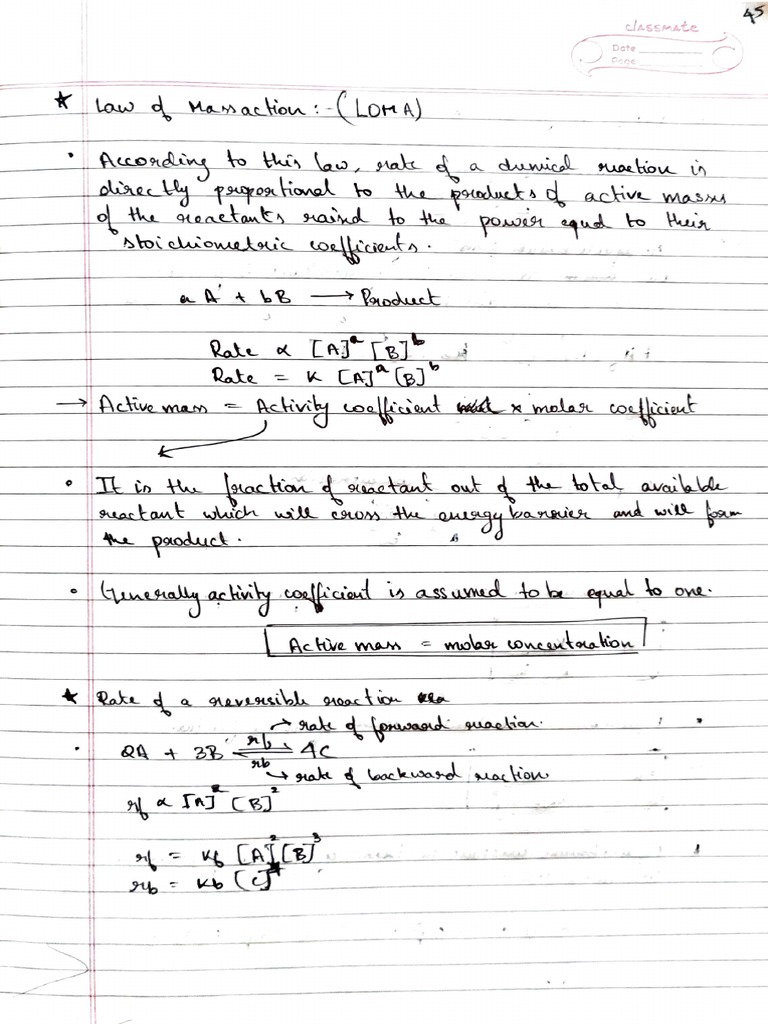 45
classmate
Date
Page
★ Law of Mass action :- (LOMA)
• According to this law, rate of a chemical reaction is
directly proportional to the products of active masses
of the reactants raised to the power equal to their
stoichiometric coefficients.
a A + b B ⟶ Product
Rate ∝ [A]ᵃ [B]ᵇ
Rate = K [A]ᵃ [B]ᵇ
→ Active mass = Activity coefficient × molar coefficient
• It is the fraction of reactant out of the total available
reactant which will cross the energy barrier and will form
the product.
• Generally activity coefficient is assumed to be equal to one.
Active mass = molar concentration
★ Rate of a reversible reaction
→ rate of forward reaction.
• 2A + 3B ⇌ 4C
rb
→ rate of backward reaction.
rf ∝ [A]² [B]²
rf = Kf [A]² [B]³
rb = Kb [C]⁴